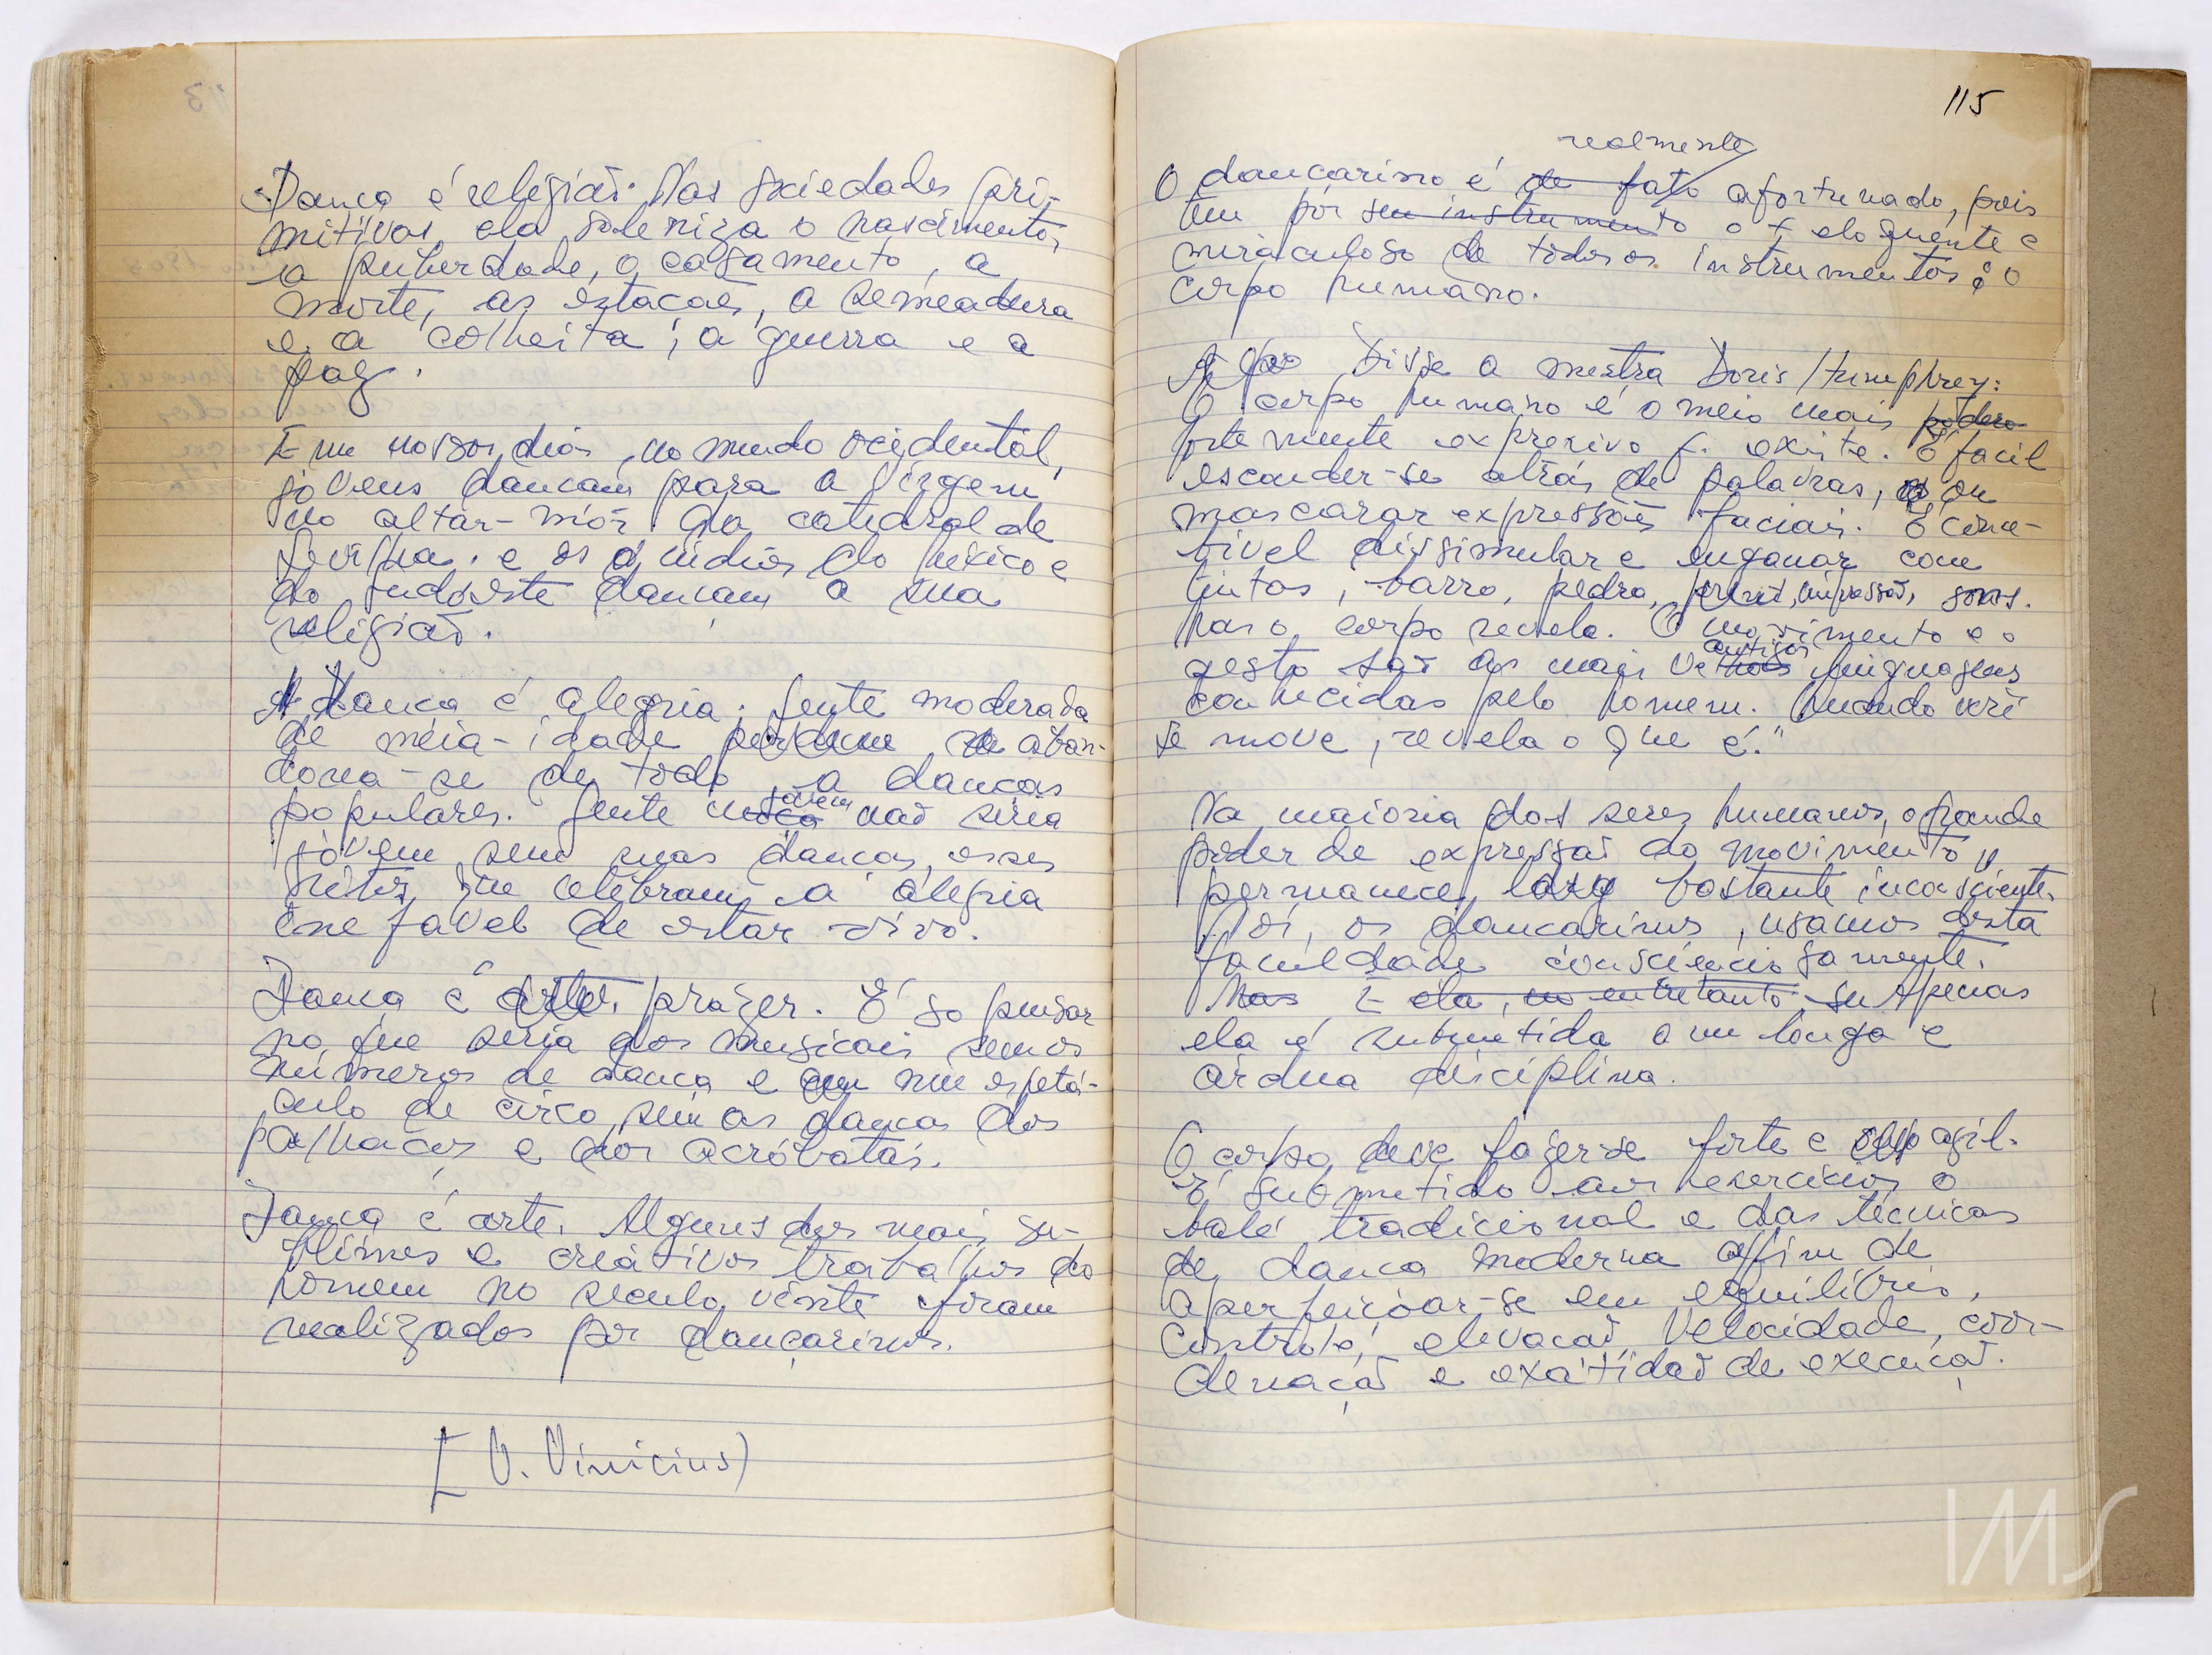 Dança é religião. Nas sociedades pri-
mitivas ela soleniza o nascimento,
a puberdade, o casamento, a
morte, as estações, a semeadura
e a colheita, a guerra e a
paz.
Em nossos dias, no mundo ocidental,
jovens dançam para a Virgem
no altar-mór da catedral de
Sevilha. e os índios do México e
do sudoeste dançam a sua
religião.
A Dança é alegria. Gente moderada
de meia-idade aban-
dona-se de todo a danças
populares. Gente moça jovem não seria
jovem sem suas danças, esses
ritos que celebram a alegria
inefavel de estar vivo.
Dança é arte. prazer. É so pensar
no que seria dos musicais sem os
números de dança e um espetá-
culo de circo sem as danças dos
palhaços e dos acróbatas.
Dança é arte. Alguns dos mais su-
blimes e creativos trabalhos do
homem no seculo vinte foram
realizados por dançarinos.
[V. Vinicius)
115
realmente
O dançarino é de fato afortunado, pois
tem por seu instrumento o + eloquente e
miraculoso de todos os instrumentos: o
corpo humano.
Disse a mestra Doris Humphrey:
O corpo humano é o meio mais podero
fortemente expressivo q. existe. É facil
esconder-se atrás de palavras, ou
mascarar expressões faciais. É
tivel dissimular e enganar com
tintas, barro, pedra, sons.
Mas o corpo revela. O movimento e o
gesto são as mais velhas antigas linguagens
conhecidas pelo homem. Quando você
se move, revela o que é."
Na maioria dos seres humanos, o grande
poder de expressão do movimento
permanece bastante inconsciente.
Nói, os dançarinos, usamos esta
faculdade conscienciosamente.
Mas E ela, no entretanto su Apenas
ela é submetida a um longa e
árdua disciplina.
O corpo deve fazer-se forte e agil.
É submetido aos exercicios o
balé tradicional e das técnicas
de dança moderna afim de
aperfeiçoar-se em equilíbrio,
controle, elevação, velocidade, coor-
denação e exatidão de execução.
IMS